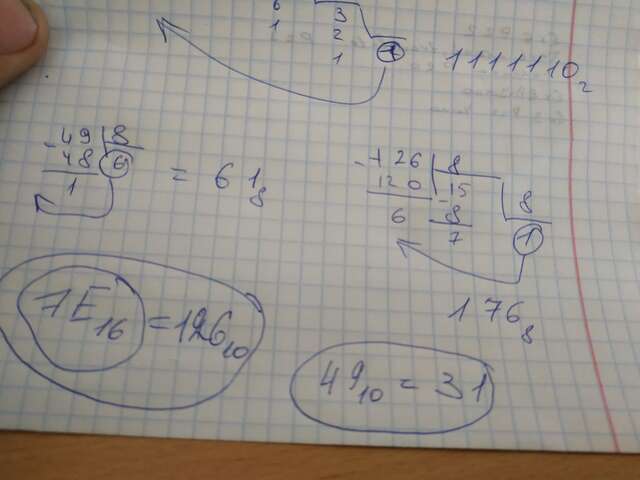 6 3
1 2
1 1 1111110₂
-49 8
48 6
1
= 61₈
-126 8
120 15 8
6 -8 1
7
176₈
7E₁₆ = 126₁₀
49₁₀ = 31